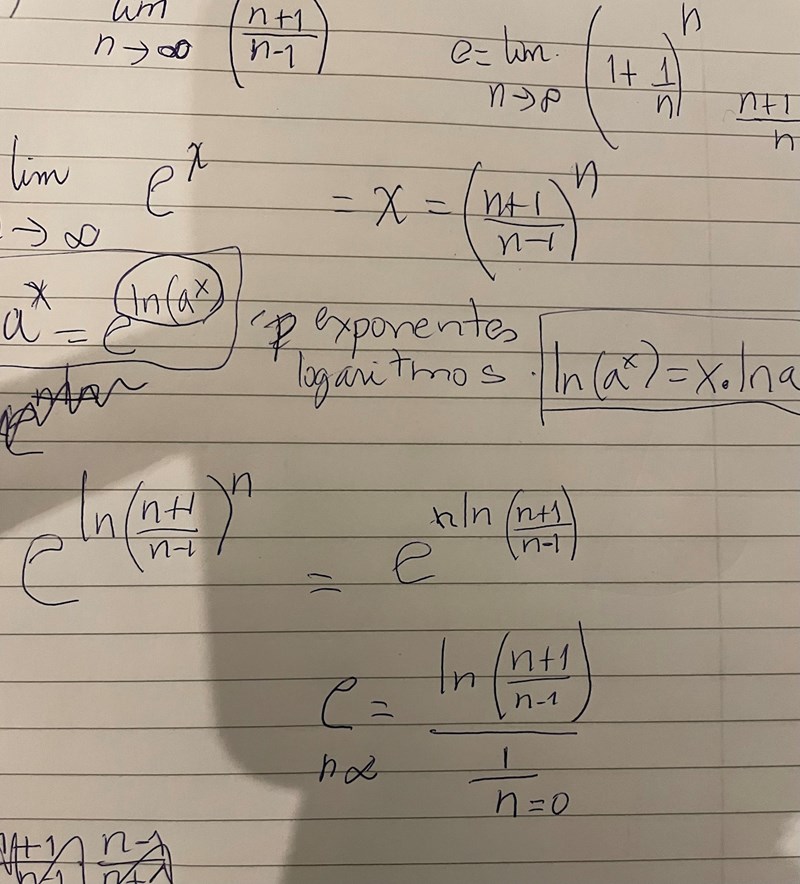 lim n→∞ (n+1/n-1)
e = lim n→∞ (1 + 1/n)^n
n+1/n
lim → ∞ e^x = x = (n+1/n-1)^n
a^x = e^ln(a^x)
exponentes
logaritmos. ln(a^x) = x. ln a
e^ln(n+1/n-1)^n = e^n ln(n+1/n-1)
e = ln(n+1/n-1) / 1/n=0
n∝
n+1/n-1 n-1/n+1